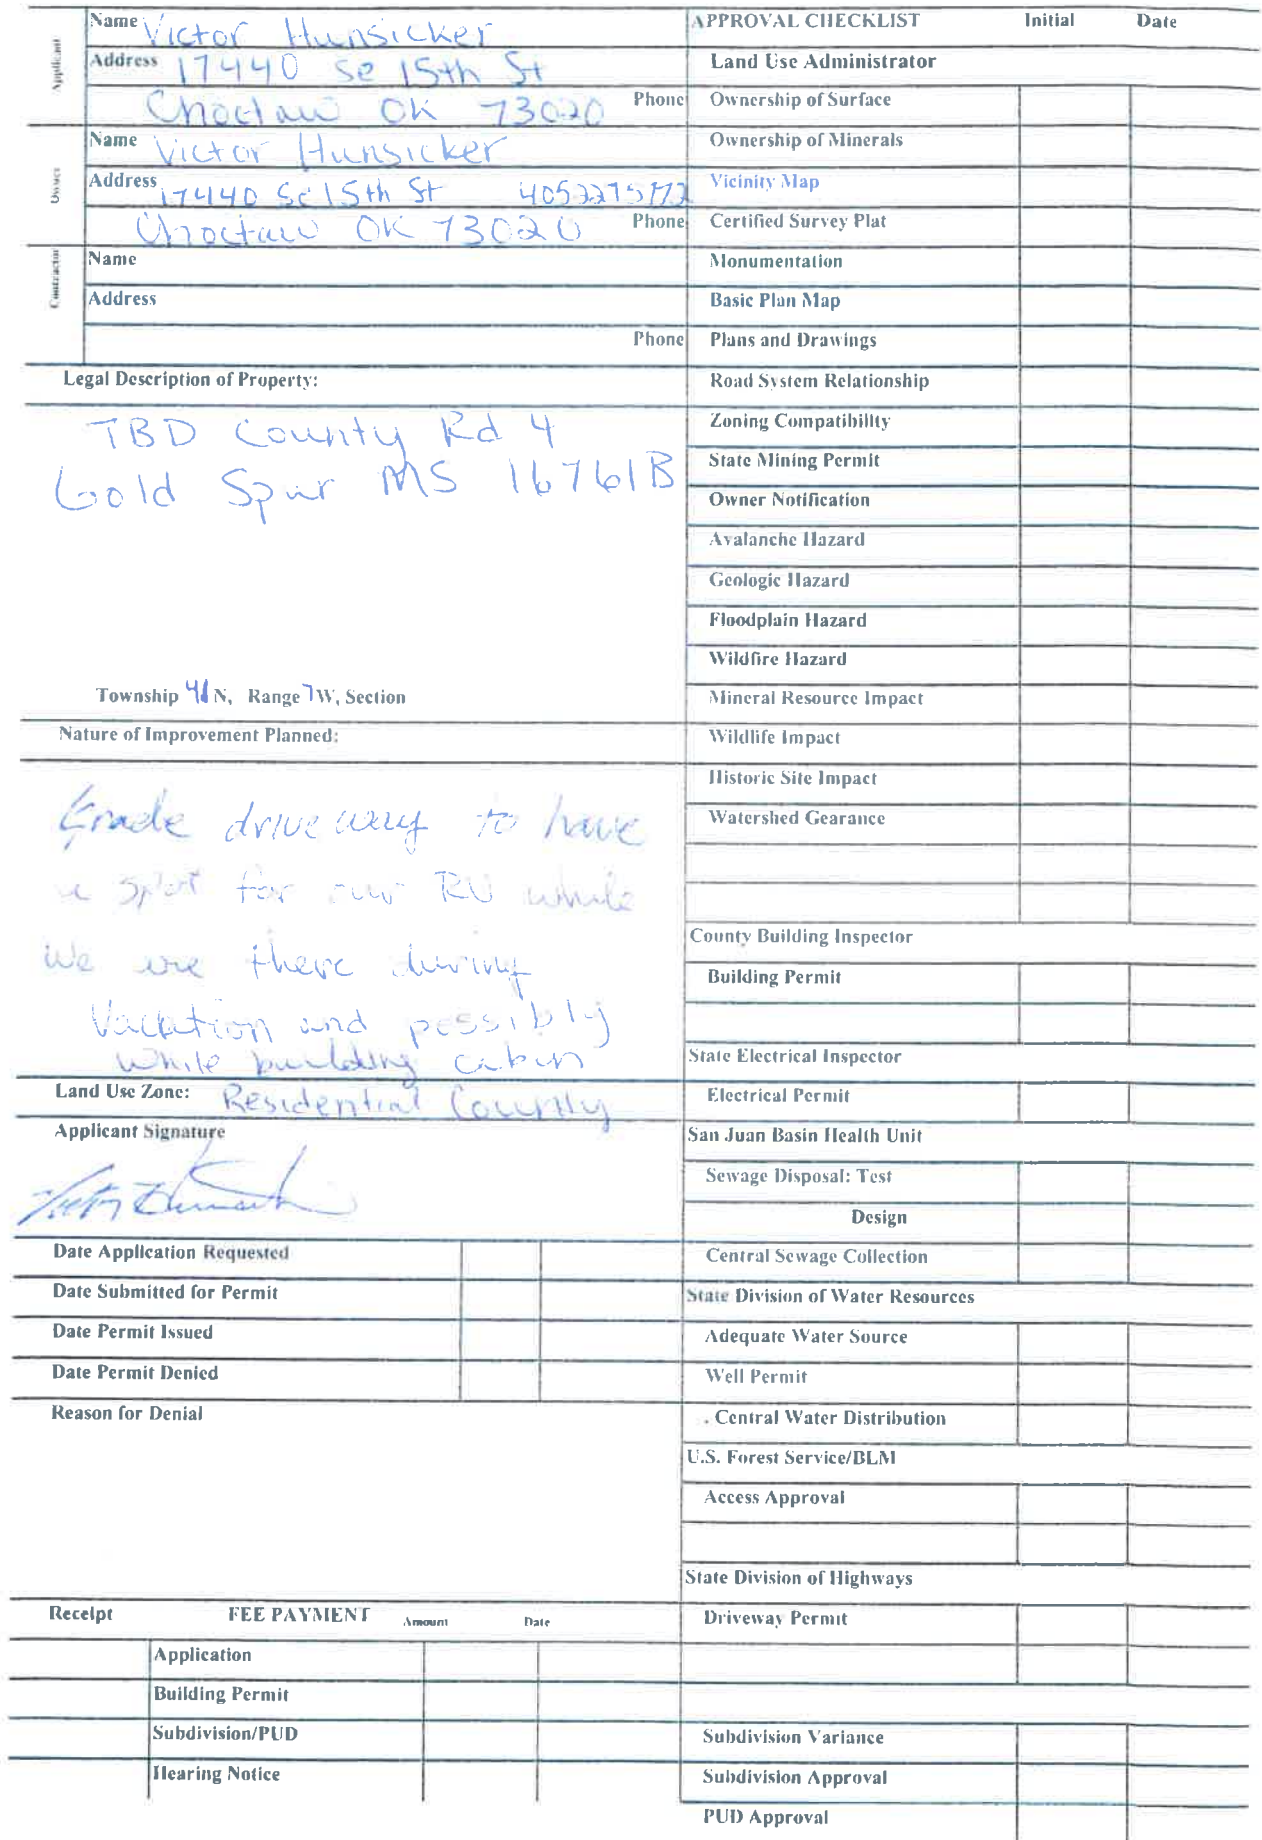 Applicant
Name Victor Hunsicker
Address 17440 Se 15th St
Choctaw OK 73020 Phone
Owner
Name Victor Hunsicker
Address 17440 Se 15th St 4052275172
Choctaw OK 73020 Phone
Contractor
Name
Address
Phone
Legal Description of Property:
TBD County Rd 4
Gold Spur MS 16761B
Township 41 N, Range 7 W, Section
Nature of Improvement Planned:
Grade driveway to have
a spot for our RV while
we are there during
Vacation and possibly
while building cabin
Land Use Zone: Residential County
Applicant Signature
Date Application Requested
Date Submitted for Permit
Date Permit Issued
Date Permit Denied
Reason for Denial
Receipt FEE PAYMENT Amount Date
Application
Building Permit
Subdivision/PUD
Hearing Notice
APPROVAL CHECKLIST Initial Date
Land Use Administrator
Ownership of Surface
Ownership of Minerals
Vicinity Map
Certified Survey Plat
Monumentation
Basic Plan Map
Plans and Drawings
Road System Relationship
Zoning Compatibility
State Mining Permit
Owner Notification
Avalanche Hazard
Geologic Hazard
Floodplain Hazard
Wildfire Hazard
Mineral Resource Impact
Wildlife Impact
Historic Site Impact
Watershed Gearance
County Building Inspector
Building Permit
State Electrical Inspector
Electrical Permit
San Juan Basin Health Unit
Sewage Disposal: Test
Design
Central Sewage Collection
State Division of Water Resources
Adequate Water Source
Well Permit
. Central Water Distribution
U.S. Forest Service/BLM
Access Approval
State Division of Highways
Driveway Permit
Subdivision Variance
Subdivision Approval
PUD Approval